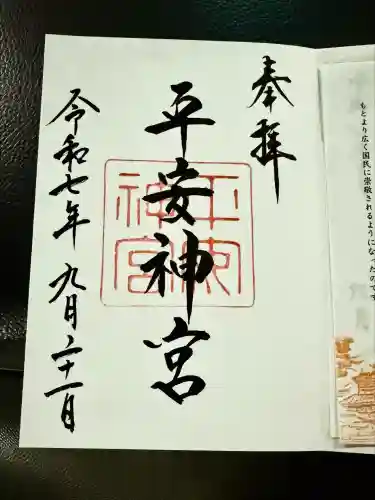 奉拝
平安神宮
平安神宮
令和七年 九月二十一日
もとより広く国民に崇敬されるようになったのです